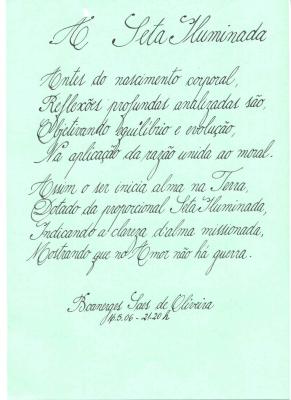 A Seta Iluminada
Antes do nascimento corporal,
Reflexões profundas analizadas são,
Objetivando equilíbrio e evolução,
Na aplicação da razão unida ao moral.
Assim o ser inicia alma na Terra,
Dotado da proporcional Seta Iluminada,
Indicando a clareza d'alma missionada,
Mostrando que no Amor não há guerra.
Boanerges Saes de Oliveira
16.5.06 - 21:20 h